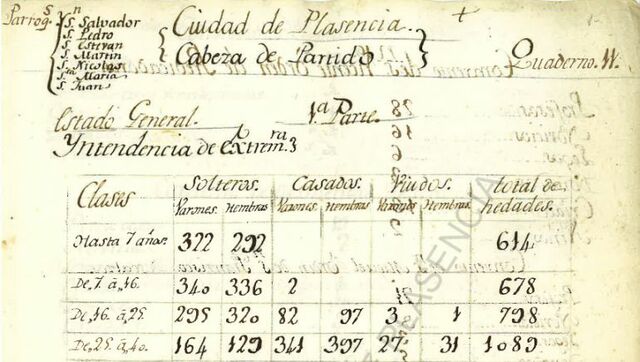 Parrog.s
Sn
S. Salvador
S. Pedro
S. Estevan
S. Martin
S. Nicolas
Sta Maria
S. Juan
Ciudad de Plasencia.
Cabeza de Partido
Quaderno. 11.
Estado General. 1.a Parte.
Yntendencia de Extrem.ra 3
Clases Solteros. Casados. Viudos. total de hedades.
Varones. Hembras Varones Hembras Varones Hembras
Hasta 7 años. 322 292 614
De, 7 â, 16. 340 336 2 678
De, 16 â, 25 295 320 82 97 3 1 798
De, 25 â, 40. 164 129 341 397 27 31 1089
PLASENCIA